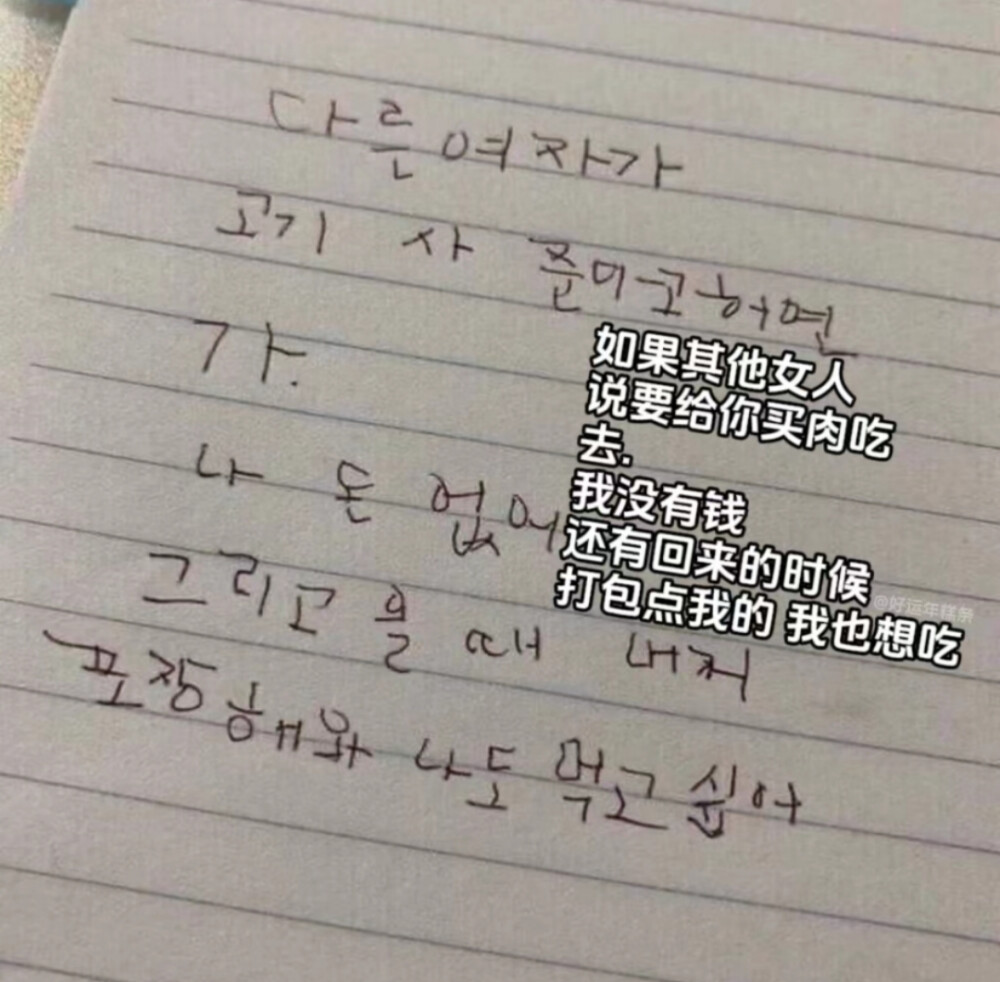 다른 여자가
고기 사 준다고 하면
가.
나 돈 없어
그리고 올 때 내꺼
포장해와 나도 먹고 싶어
如果其他女人
说要给你买肉吃
去.
我没有钱
还有回来的时候
打包点我的 我也想吃
@好运年糕条